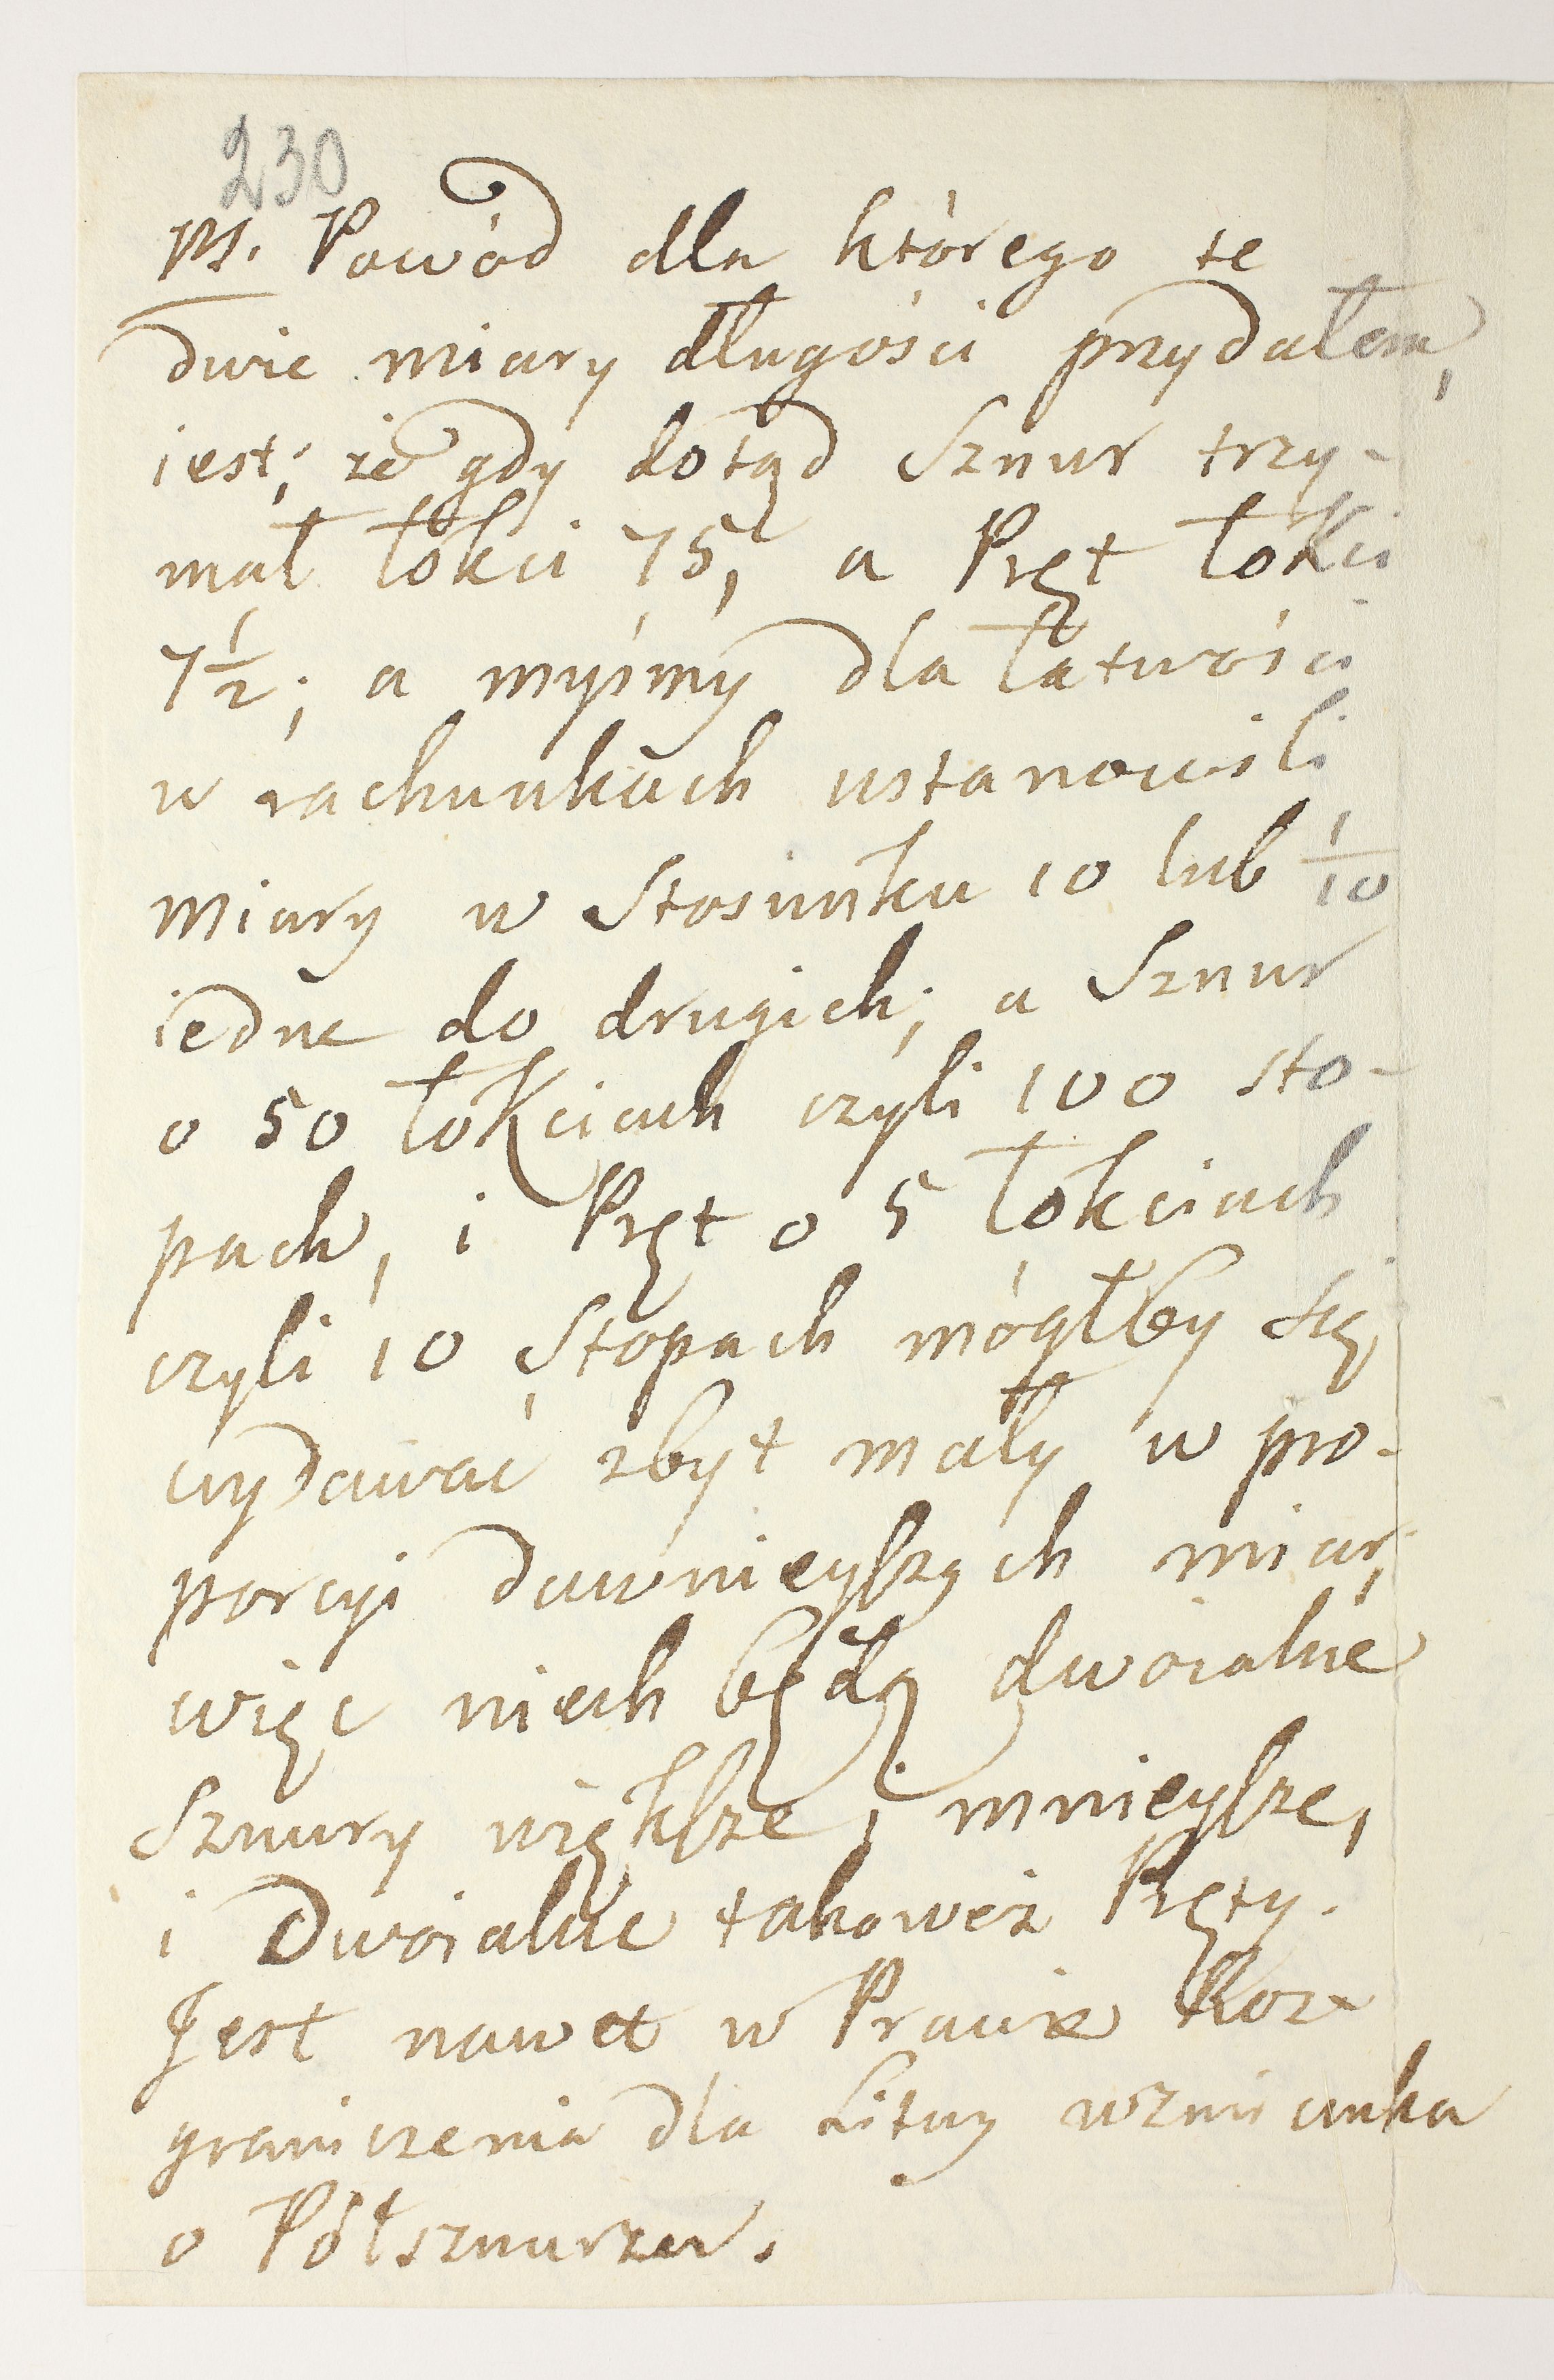 230
PS. Powód dla którego te
dwie miary długości przydałem,
iest; że gdy dotąd Sznur trzy-
mał łokci 75, a Pręt łokci
7 1/2; a myśmy dla łatwości
w rachunkach ustanowili
miary w Stosunku 10 lub 1/10
iedne do drugich; a Sznur
o 50 łokciach czyli 100 sto-
pach, i Pręt o 5 łokciach
czyli 10 Stopach mógłby się
wydawać zbyt mały w pro-
porcyi dawnieyszych miar;
więc niech będą dwoiakie
Sznury większe i mnieysze,
i Dwoiakie takoweż Pręty.
Jest nawet w Prawie Roz-
graniczenia dla Litwy wzmianka
o Półsznurzu.